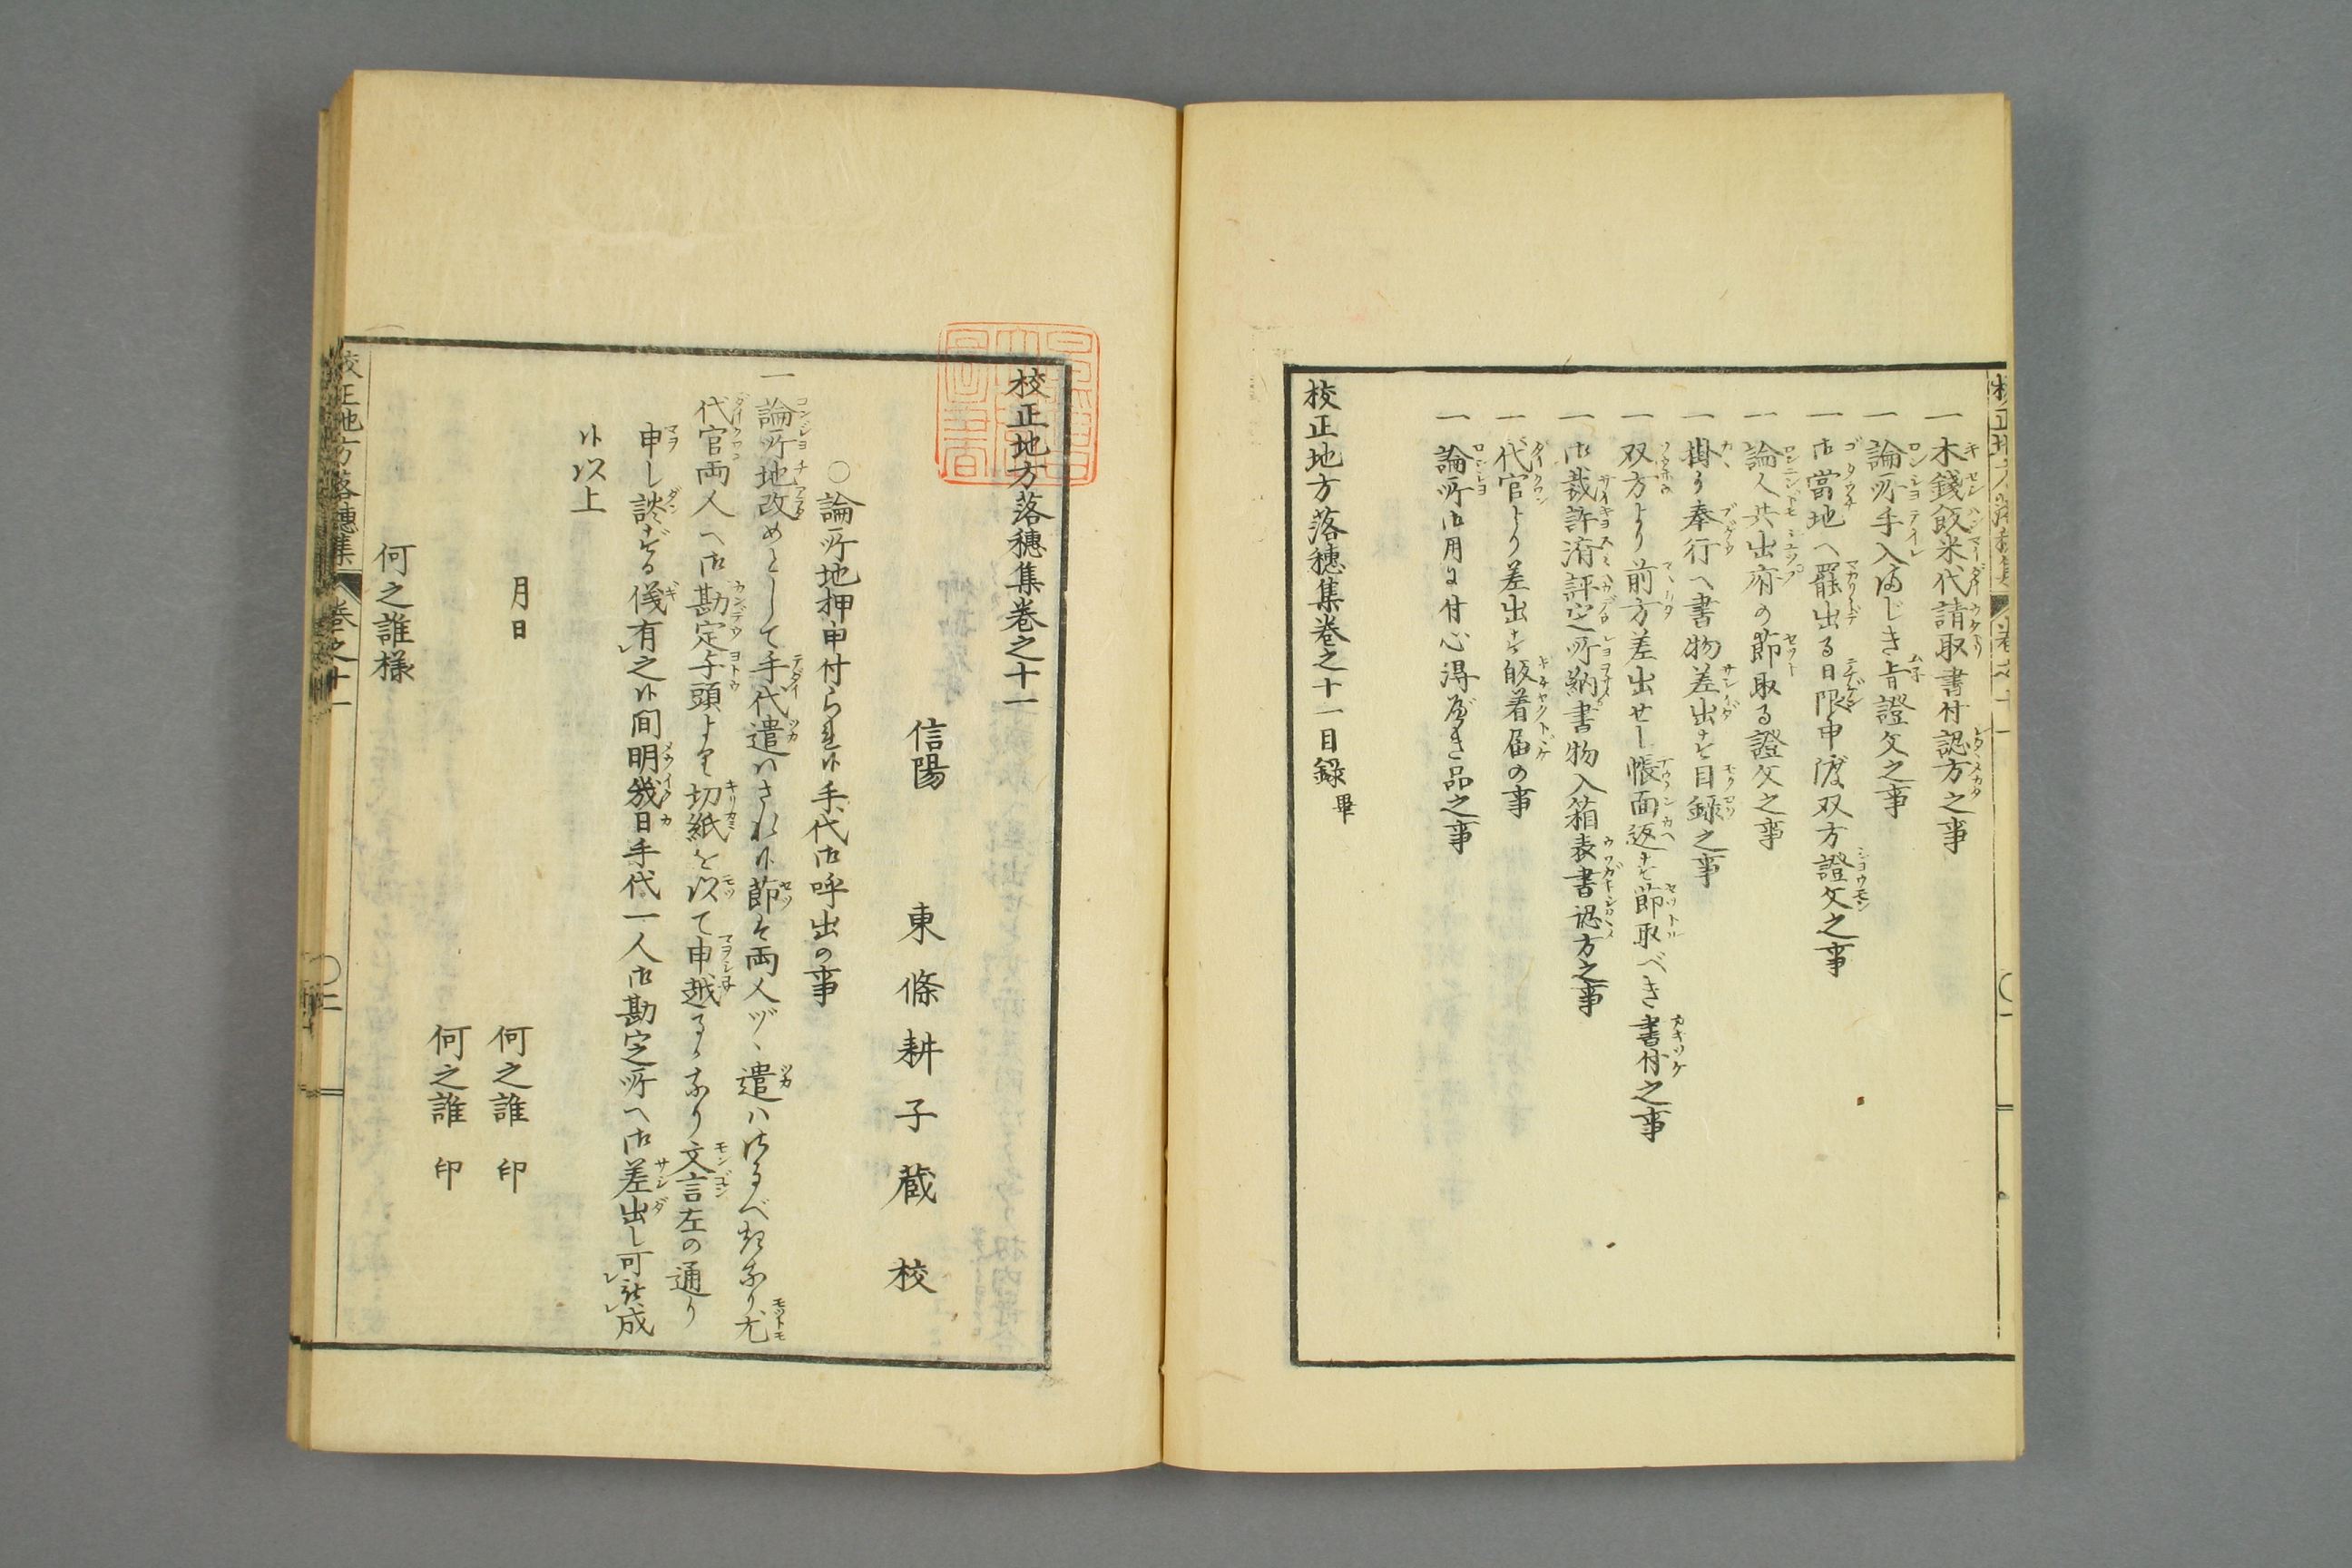 一木錢飯米代請取書付認方之事
一論所手入間じき旨證文之事
一御當地へ罷出る日限申渡双方證文之事
一論人共出府の節取る證文之事
一掛り奉行へ書物差出を目録之事
一双方より前方差出せし帳面返を節取べき書付之事
一御裁許済評定所納書物入箱表書認方之事
一代官より差出を皈着届の事
一論所御用に付心得べき品之事
校正地方落穗集卷之十一目録畢
校正地方落穗集卷之十一
信陽 東條耕子蔵校
○論所地押申付られ候手代御呼出の事
一論所地改めとして手代遣ハされ候節を両人ヅヽ遣ハ
代官両人へ御勘定与頭より切紙を以て申越るゝなり文言左の通り
申し談ずる儀有之候間明幾日手代一人御勘定所へ御差出し可被成
候以上
月日
何之誰 印
何之誰 印
何之誰様
校正地方落穗集 卷之十一 ○二